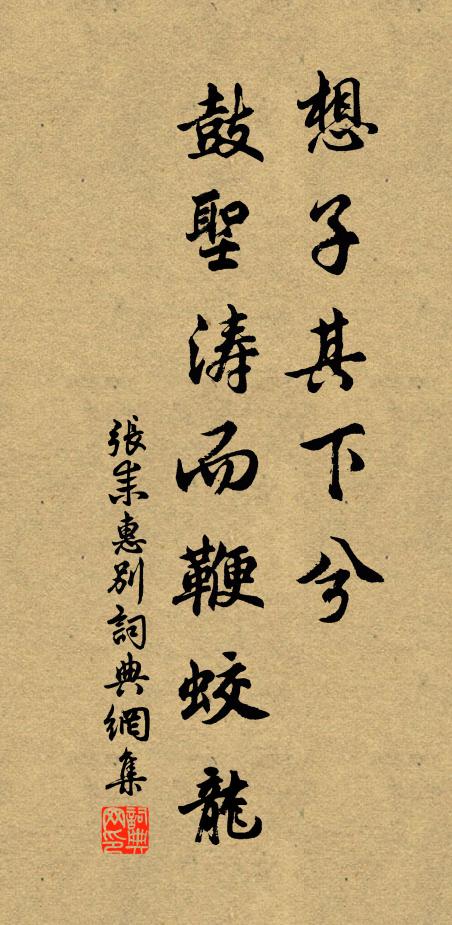 想子其下兮
鼓聖涛而鞭蛟龍
張耒惠别詞典網集
詞典網印